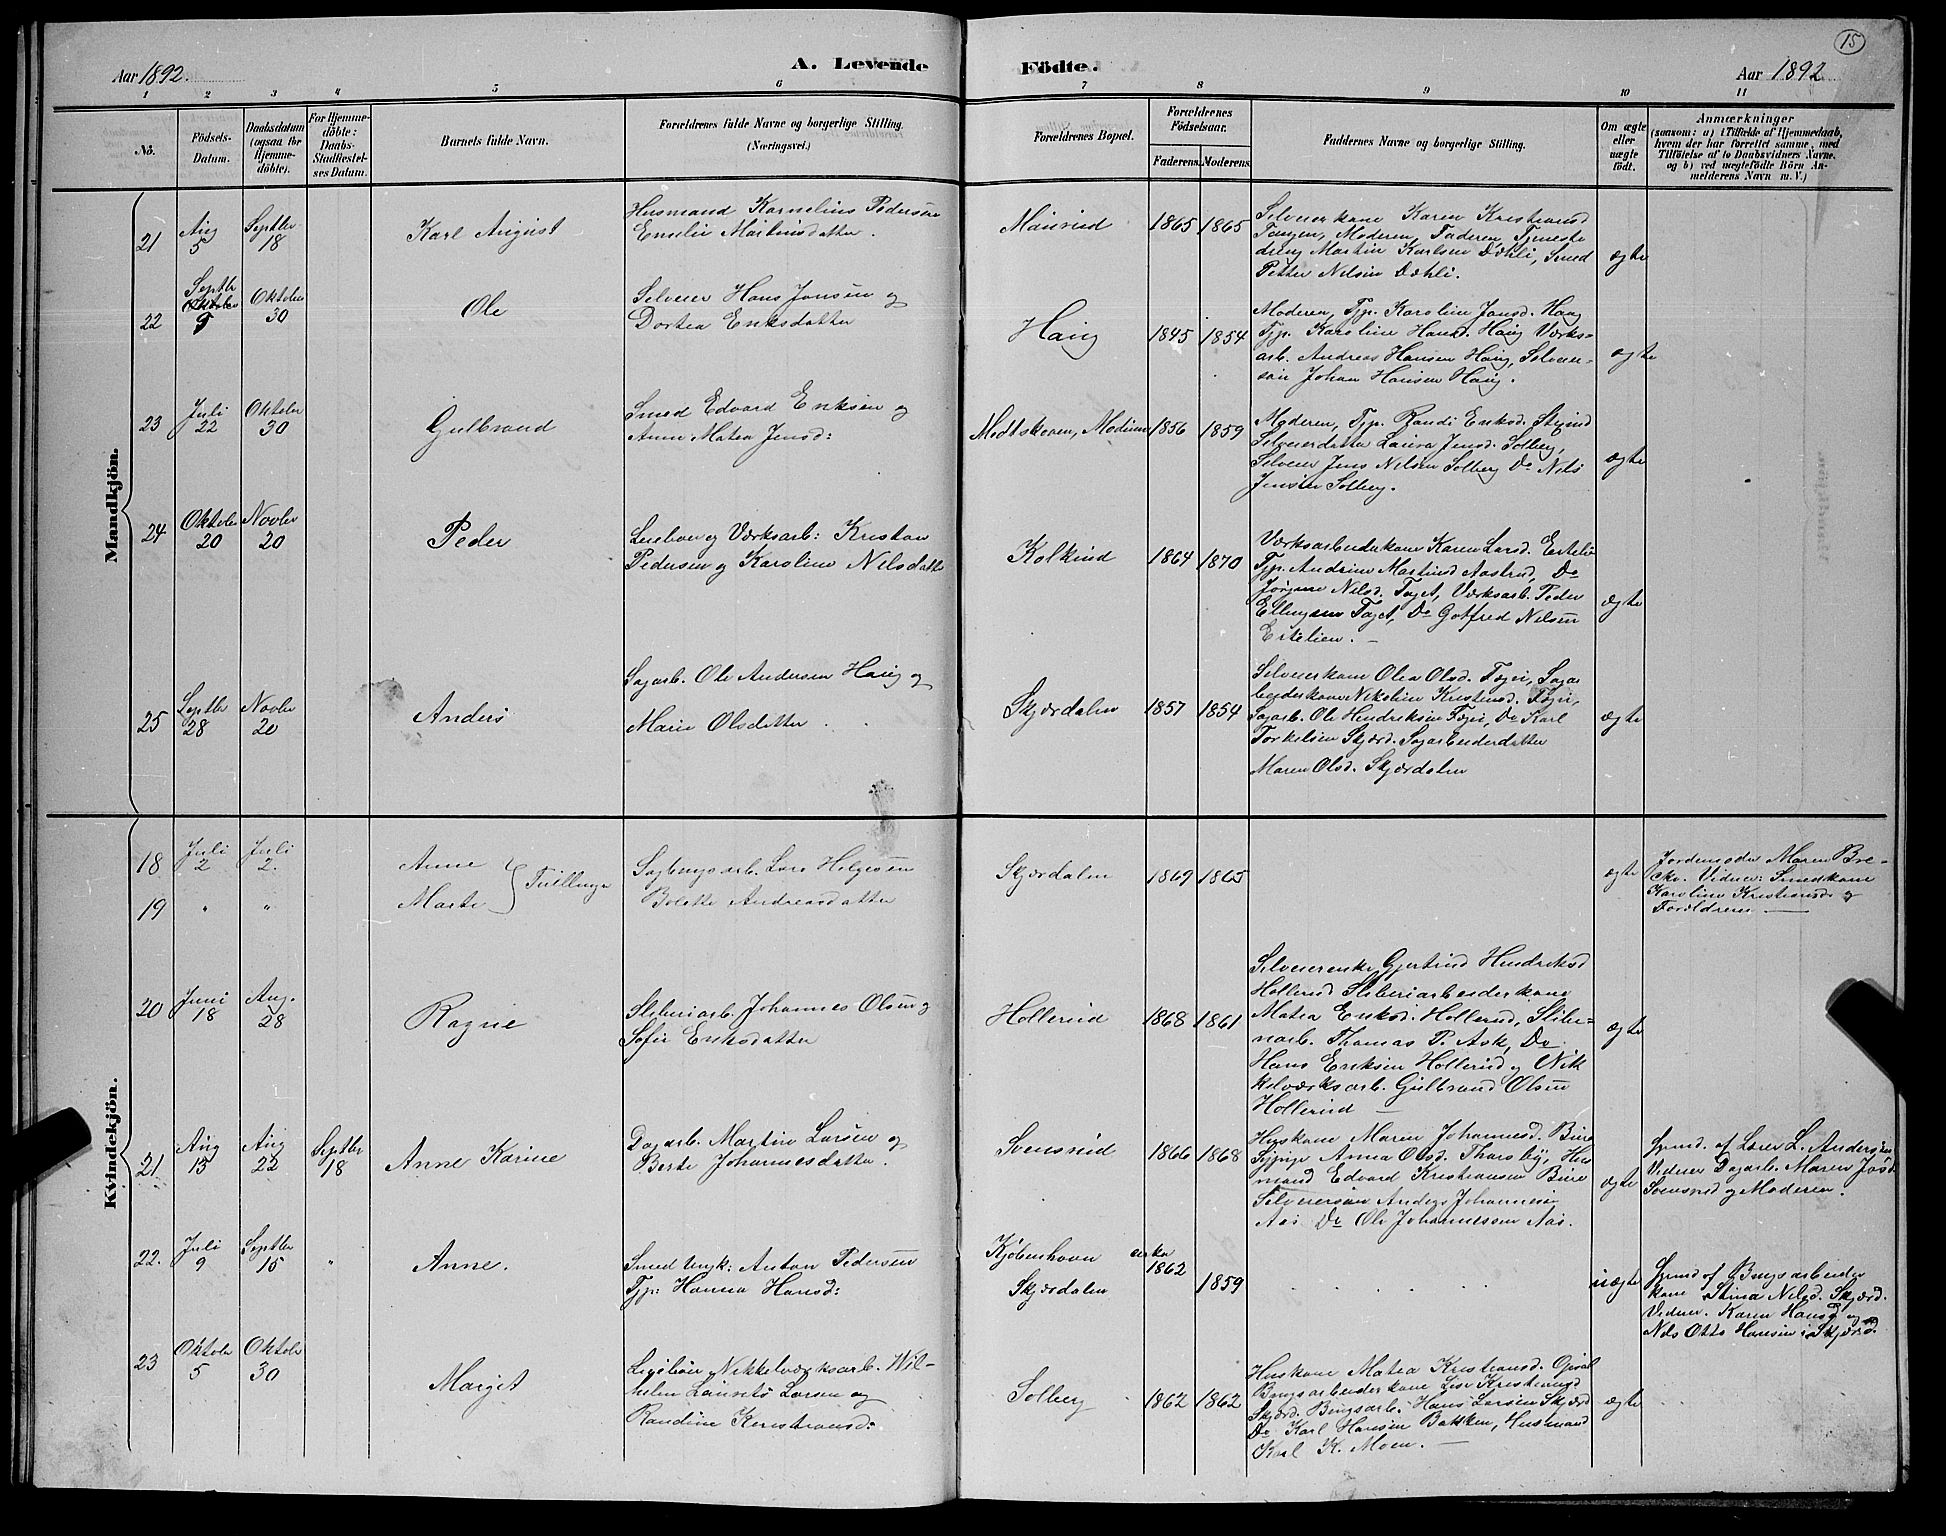 15
Aar 1892.
A. Levende
Födte.
Aar 1892
1 2 3 4 5 6 7 8 9 10 11
No.
Födsels-
Datum.
Daabsdatum
(ogsaa for
Hjemme-
döbte).
For Hjemme-
döbte:
Daabs-
Stadfæstel-
ses Datum.
Barnets fulde Navn.
Forældrenes fulde Navne og borgerlige Stilling.
(Næringsvei.)
Forældrenes Bopæl.
Forældrenes
Födselsaar.
Faderens.
Moderens.
Faddernes Navne og borgerlige Stilling.
Om ægte
eller
uægte
födt.
Anmærkninger
(saasom: a) i Tilfælde af Hjemmedaab,
hvem der har forrettet samme, med
Tilföielse af to Daabsvidners Navne,
og b) ved uægtefödte Börn An-
melderens Navn m. V.)
Mandkjön.
21
Aug
5
Septbr
18
Karl August
Husmand Kornelius Pedersen
Emelie Martinsdatter.
Maurud
1865 1865
Selveierkone Karen Kristiansd
Tangen, Moderen, Faderen, Tjeneste
dreng Martin Karlsen Dæhli, Smed
Petter Nilsen Dæhli.
ægte
22
Septbr
Oktober
9
Oktober
30
Ole
Selveier Hans Jonsen og
Dortea Eriksdatter
Haug
1845 1854
Moderen, Tjp. Karoline Jonsd. Haug
Tjp. Karoline Hansd. Haug Værks-
arb. Andreas Hansen Haug, Selveier-
søn Johan Hansen Haug.
ægte
23
Juli
22
Oktober
30
Gulbrand
Smed Edvard Eriksen og
Anne Matea Jensd:
Modtskoven, Modum
1856 1859
Moderen, Tjp. Randi Eriksd.
Selveierdatter Laura Jensd. Solberg,
Selveier Jens Nilsen Solberg Do Nils
Jensen Solberg.
ægte
24
Oktober
20
Novbr
20
Peder
Leiebor og Værksarb: Kristian
Pedersen og Karoline Nilsdatter
Kolkind
1864 1870
Værksarbeiderkone Karen Larsd. Ertelie
Tjp. Andrine Martinsd Aastrud, Do
Jørgine Nilsd. Faget, Værksarb. Peder
Ellingsen Faget, Do Gotfred Nilsen
Ertelien. —
ægte
25
Septbr
28
Novbr
20
Anders
Sagarb. Ole Andersen Haug og
Marie Olsdatter
Skjærdalen
1857 1854
Selveierkone Olea Olsd. Fegri, Saga
beiderkone Nikoline Kristensd. Fegri,
Sagarb. Ole Hendriksen Fegri, Do Karl
Torkelsen Skjærd. Sagarbeiderdatter
Maren Olsd. Skjærdalen
ægte
Kvindekjön.
18
Juli
2
Juli
2.
Anne
19
" "
Marte
Tvillinger
Sagbrugsarb. Lars Helgesen
Bolette Andreasdatter
Skjærdalen
1869 1865
ægte
Jordemoder Maren Bre-
cke. Vidner: Smedkone
Karoline Kristiansd og
Forældrene —
20
Juni
18
Aug.
28
Ragne
Sliberiarb. Johannes Olsen og
Sofie Eriksdatter
Hollerud
1868 1861
Selveierenke Gjertrud Hendriksd
Hollerud Sliberiarbeiderkone
Matea Eriksd. Hollerud, Slibe-
riarb. Thomas P. Ask, Do
Hans Eriksen Hollerud og Nik
kelværksarb. Gulbrand Olsen
Hollerud —
ægte
21
Aug
13
Aug
22
Septbr
18
Anne Karine
Dagarb. Martin Larsen og
Berte Johannesdatter.
Svensrud
1866 1868
Huskone Maren Johannesd. Bure
Tjpige Anna Olsd. Thorsby, Hus
mand Edvard Kristiansen Bure
Selveiersøn Anders Johannesen
Aas Do Ole Johannessen Aas.
ægte
Hjemd. af Lærer L. Andersen
Vidner Dagarb. Maren Josd.
Svensrud og Moderen.
22.
Juli
9
Septbr
15
"
Anne.
Smed Ungk: Anton Pedersen
Tjp: Hanna Hansd:
Kjøbenhavn
Skjærdalen
cirka
1862
1859
uægte
Hjemd af Brugsarbeider
kone Stina Nilsd. Skjærd.
Vidner. Karen Hansd og
Nils Otto Hansen i Skjærd.
23
Oktober
5
Oktober
30
Margit
Nikkelværksarb. Wil-
helm Lauritz Larsen og
Randine Kristiansd:
Solberg
1862 1862
Huskone Matea Kristiansd.
Brugsarbeiderkone Lise Kristiansd
Skjærd. Brugsarb. Hans Larsen Skjærd
Do Karl Hansen Bakken, Husmand
Karl K. Moen. —
ægte